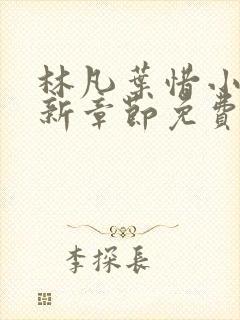 林凡葉惜小
新章節免費
李探長